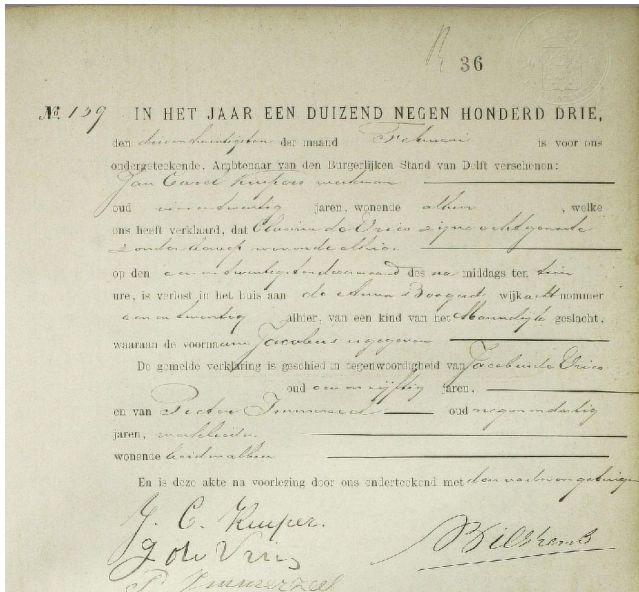 36
No. 139 IN HET JAAR EEN DUIZEND NEGEN HONDERD DRIE,
den drieentwintigsten der maand Februari is voor ons
ondergeteekende, Ambtenaar van den Burgerlijken Stand van Delft verschenen:
Jan Carel Kuipers werkman
oud vierentwintig jaren, wonende alhier, welke
ons heeft verklaard, dat Clasina de Vries zijne echtgenoote
zonder beroep wonende alhier
op den eenentwintigsten dezer maand des na middags ter, tien
ure, is verlost in het huis aan de Anna Boogerd wijk acht nummer
eenentwintig alhier, van een kind van het Mannelijke geslacht,
waaraan de voornaam Jacobus is gegeven
De gemelde verklaring is geschied in tegenwoordigheid van Jacobus de Vries
oud eenenvijftig jaren,
en van Pieter Immerzeel oud negenendertig
jaren, werklieden
wonende beiden alhier
En is deze akte na voorlezing door ons onderteekend met den vader en getuigen
J. C. Kuiper.
J de Vries
P. Immerzeel